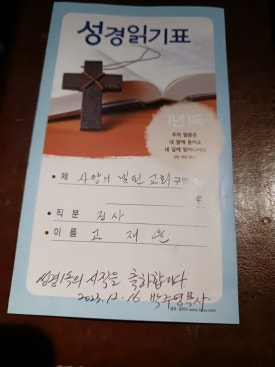 성경읽기표
1년1독
주의 말씀은
내 발에 등이요
내 길에 빛이니이다
• 제 사랑의 빛된교회 구역
• 직 분 집사
• 이 름 고 재
성경1독의 시작을 축하합니다.
2023.12.16 박주영목사